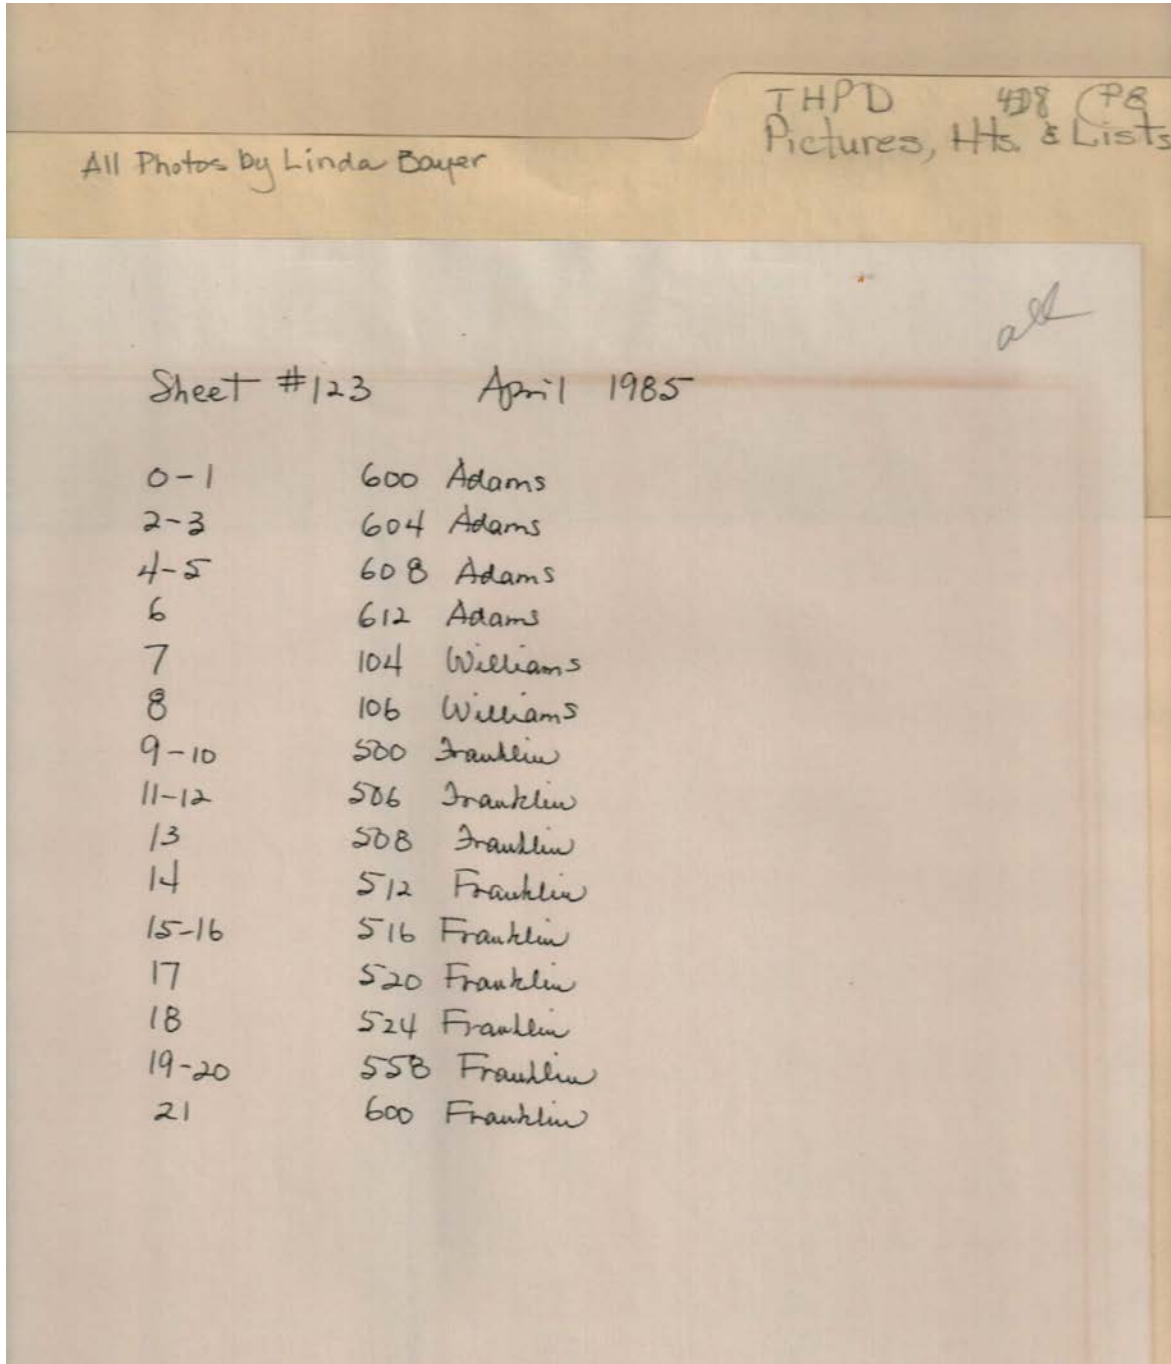 THPD 408 P8
Pictures, Hts. & Lists
All Photos by Linda Bayer
all
Sheet #123 April 1985
0-1 600 Adams
2-3 604 Adams
4-5 608 Adams
6 612 Adams
7 104 Williams
8 106 Williams
9-10 500 Franklin
11-12 506 Franklin
13 508 Franklin
14 512 Franklin
15-16 516 Franklin
17 520 Franklin
18 524 Franklin
19-20 558 Franklin
21 600 Franklin